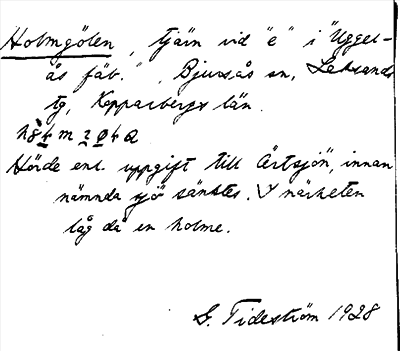 Holmgölen, tjärn vid "e" i "Uggel-
ås fäb.", Bjursås sn, Leksands
tg, Kopparbergs län.
Hörde enl. uppgift till Ärtsjön, innan
nämnda sjö sänktes. I närheten
låg då en holme.
G. Tideström 1928